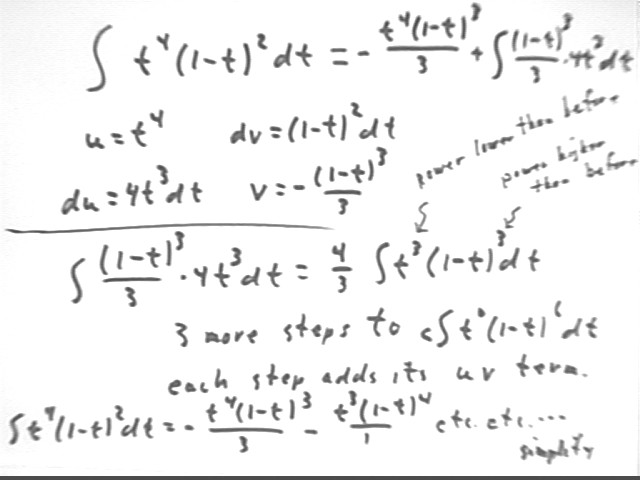 ∫ t⁴(1-t)² dt = - t⁴(1-t)³/3 + ∫ (1-t)³/3 · 4t³ dt
u = t⁴ dv = (1-t)² dt
du = 4t³ dt v = - (1-t)³/3
power lower than before
power higher
than before
∫ (1-t)³/3 · 4t³ dt = 4/3 ∫ t³ (1-t)³ dt
3 more steps to c∫ t⁰(1-t)⁶ dt
each step adds its uv term.
∫ t⁴(1-t)² dt = - t⁴(1-t)³/3 - t³(1-t)⁴/ etc. etc....
simplify